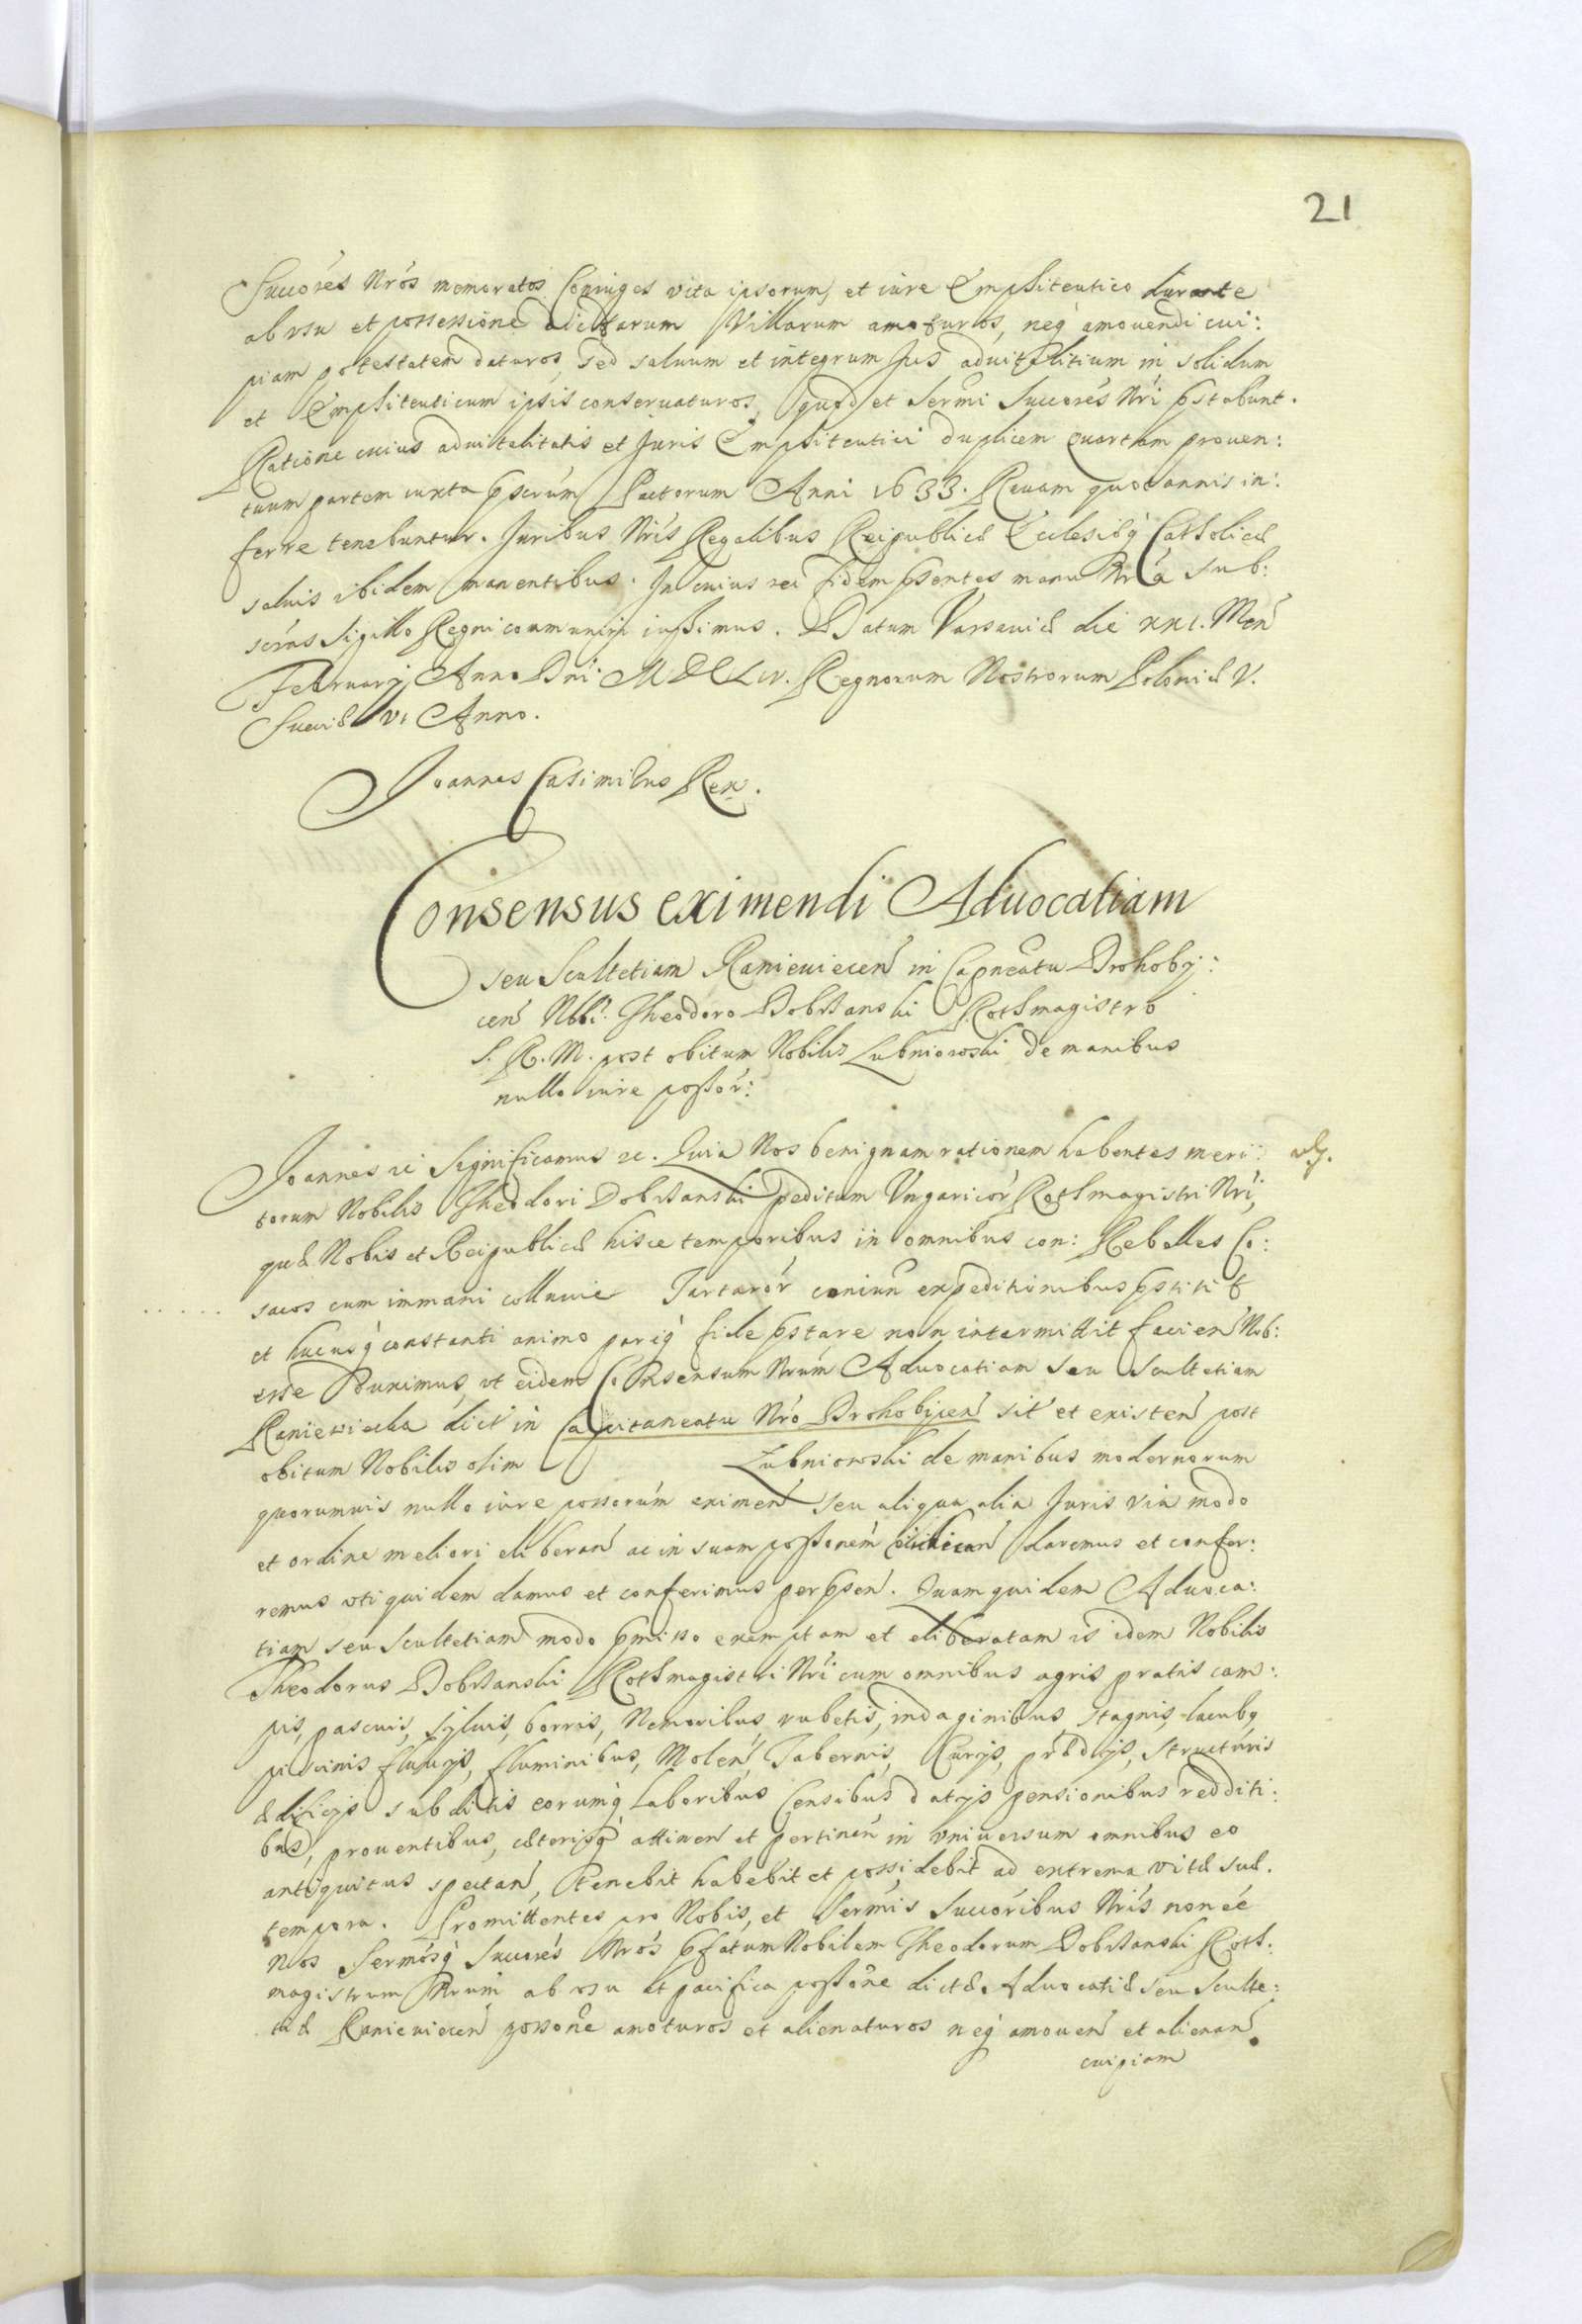 21
Succóres Nrós memoratos Coniuges vita ipsorum, et iure Emphiteutico durante
ab vsu et possessione dictarum Villarum amoturos, neq́ amouendi cui:
piam potestatem daturos, sed saluum et integrum Jus aduitalitium in solidum
et Emphiteuticum ipsis conseruaturos, quod et Sermi Succorés Nri pstabunt.
Ratione cuius aduitalitatis et Juris Emphiteutici duplicem quartam prouen:
tuum partem iuxta pscrúm Pactorum Anni 1633. Rauam quotannis in:
ferre tenebuntur. Juribus Nris Regalibus Reipublicæ Ecclesiæq́ Catholicæ
saluis ibidem manentibus. In cuius rei fidem psentes manu Nra sub:
scras Sigillo Regni communiri iussimus. Datum Varsauiæ die XXI. Men
Februarij Anno Dni MDCLIV. Regnorum Nostrorum Poloniæ V.
Sueciæ VI Anno.
Joannes Casimirus Rex.
Consensus eximendi Aduocatiam
seu Scultetiam Ranieuiecen in Capneatu Drohobÿ:
cen Nbli. Theodoro Dobrzanski Rothmagistro
S. R. M. post obitum Nobilis Lubniowski de manibus
nullo iure possór:
Joannes &c Significamus &c. Quia Nos benignam rationem habentes meri:
torum Nobilis Theodori Dobrzanski peditum Vngaricór Rothmagistri Nri,
quæ Nobis et Reipublicæ hisce temporibus in omnibus con: Rebelles Co:
sacos cum immani colluuie Tartarór coniun expeditionibus pstitit
et hucusq́ constanti animo pariq́ fide pstare non intermittit facien Nob:
esse Duximus, vt eidem Consensum Nrum Aduocatiam seu Scultetiam
Raniewiecka dict in Capitaneatu Nro Drohobijcen sit et existen post
obitum Nobilis olim Lubniowski de manibus modernorum
quorumuis nullo iure possorúm eximen seu aliqua alia Juris via modo
et ordine meliori eliberan ac in suam possonem daremus et confer:
remus vti quidem damus et conferimus per psen. Quam quidem Aduoca:
tiam seu Scultetiam modo pmisso exemptam et eliberatam is idem Nobilis
Theodorus Dobrzanski Rothmagistri Nri cum omnibus agris pratis cam:
pis, pascuis, syluis, borris, Nemoribus, rubetis, indaginibus stagnis, lacubq
piscinis fluuijs, fluminibus, Molen, Tabernis, Curijs, prædijs, structuris
ædificijs subditis eorumq́ laboribus Censibus datijs pensionibus redditi:
bus, prouentibus, cæterisq́ attinen et pertinen in vniuersum omnibus eo
antiquitus spectan, tenebit habebit et possidebit ad extrema vitæ suæ
tempora. Promittentes pro Nobis, et Sermis Succoribus Nris non eé
Nos Sermosq́ Succorés Nrós pfatum Nobilem Theodorum Dobrzanski Roth:
magistrum Nrum ab vsu et pacifica possone dictæ Aduocatiæ seu Sculte:
tiæ Ranieuiecen possone amoturos et alienaturos neq́ amouen et alienan
cuipiam